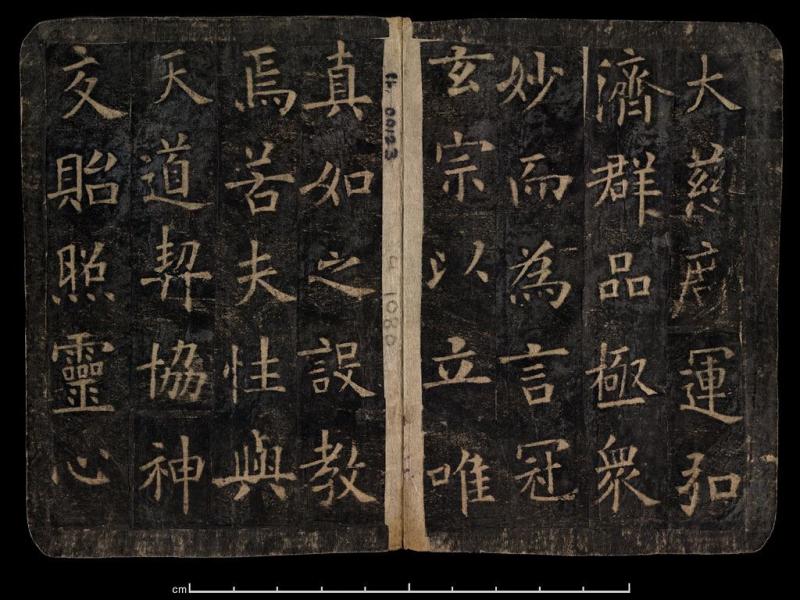 大慈廣運弘
濟群品極衆
妙而為言冠
玄宗以立唯
真如之設教
焉若夫性與
天道契協神
交貽照靈心
1080
cm